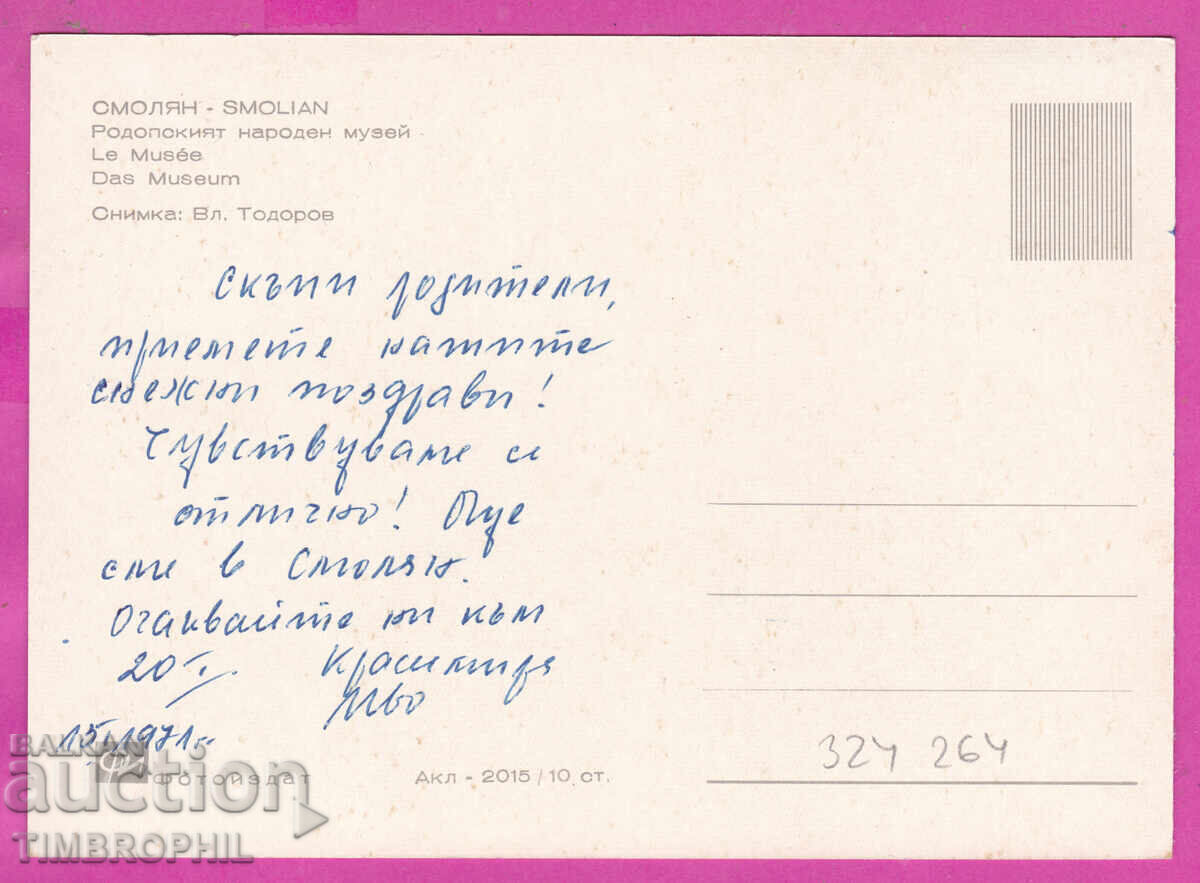 СМОЛЯН - SMOLIAN
Родопският народен музей
Le Musée
Das Museum
Снимка: Вл. Тодоров
Скъпи родители,
приемете нашите
снежни поздрави!
Чувствуваме се
отлично! Още
сме в Смолян.
Очаквайте ни към
20/I. Красимира
Иво
15.I.1971г.
Фотоиздат
Акл - 2015/10 ст.
324 264
BALKAN
auction
TIMBROPHIL